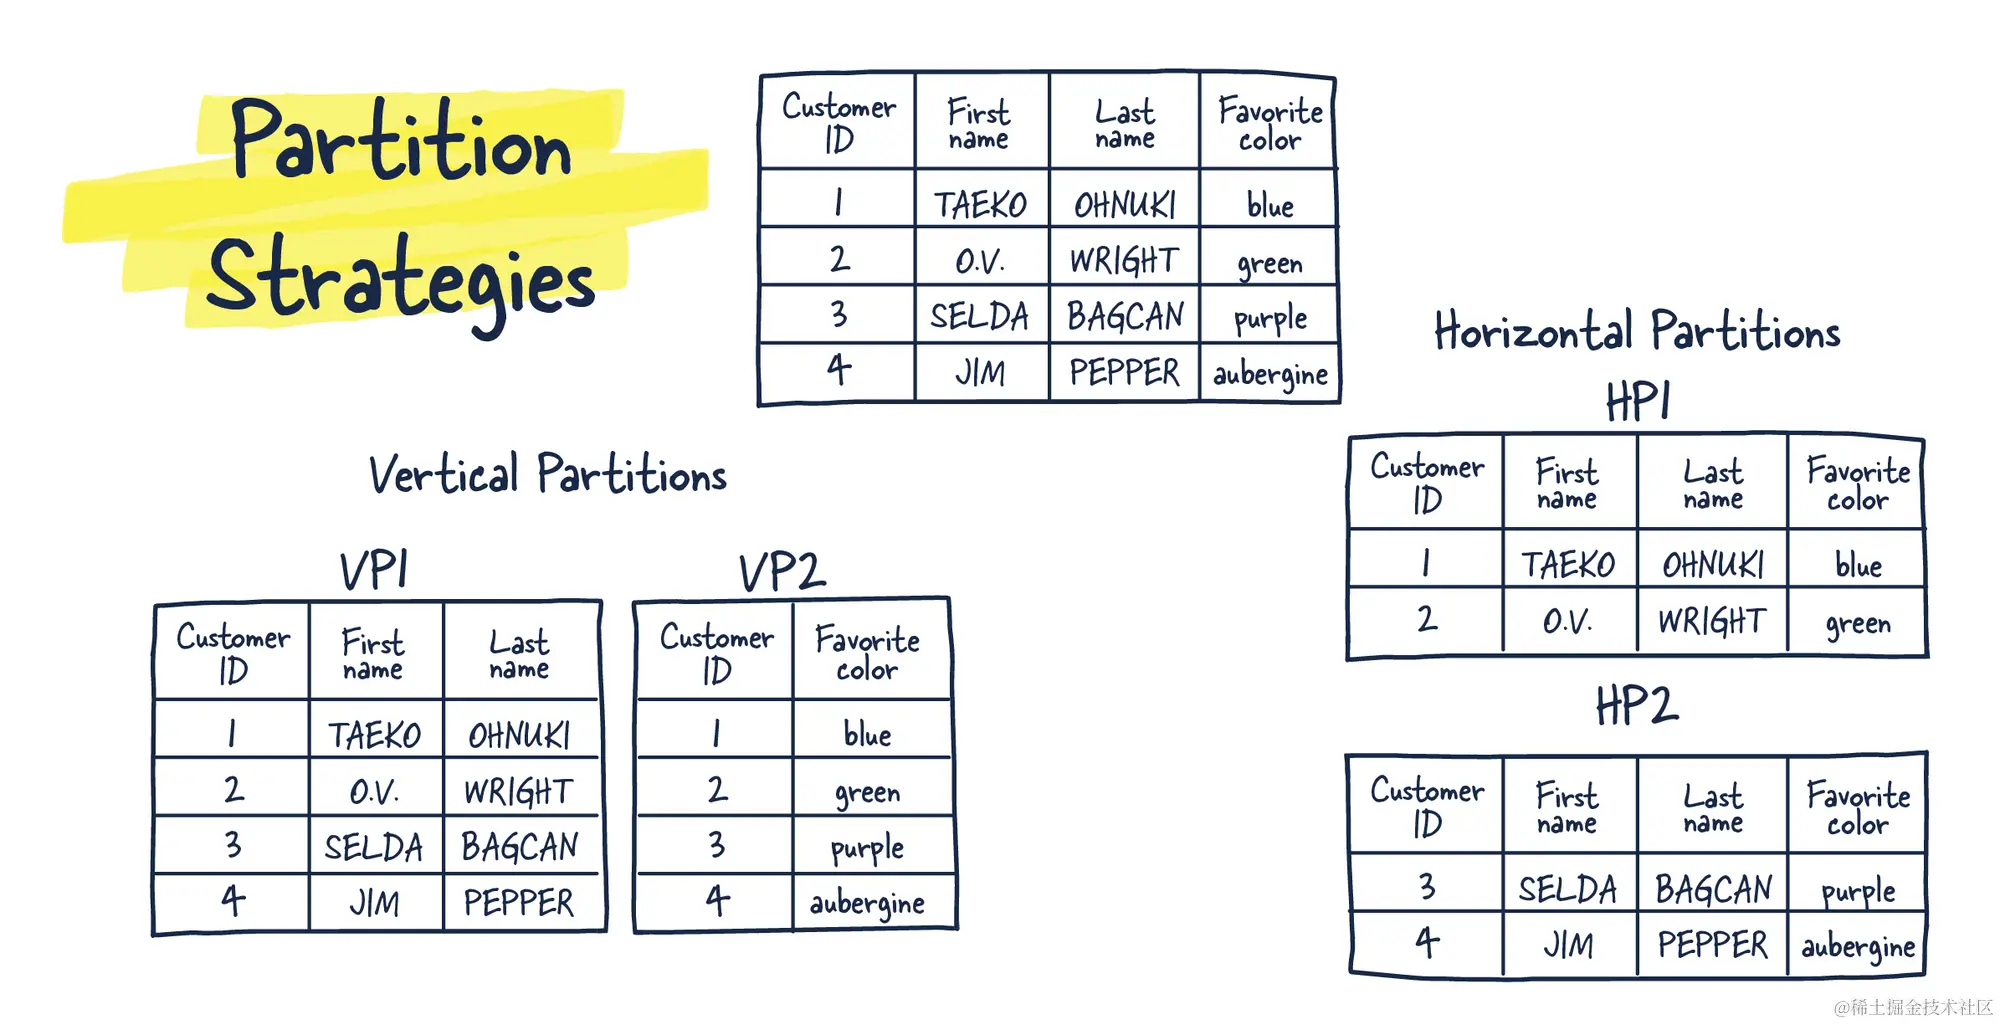 Partition
Strategies
Customer ID First name Last name Favorite color
1 TAEKO OHNUKI blue
2 O.V. WRIGHT green
3 SELDA BAGCAN purple
4 JIM PEPPER aubergine
Vertical Partitions
VP1
Customer ID First name Last name
1 TAEKO OHNUKI
2 O.V. WRIGHT
3 SELDA BAGCAN
4 JIM PEPPER
VP2
Customer ID Favorite color
1 blue
2 green
3 purple
4 aubergine
Horizontal Partitions
HP1
Customer ID First name Last name Favorite color
1 TAEKO OHNUKI blue
2 O.V. WRIGHT green
HP2
Customer ID First name Last name Favorite color
3 SELDA BAGCAN purple
4 JIM PEPPER aubergine
@稀土掘金技术社区